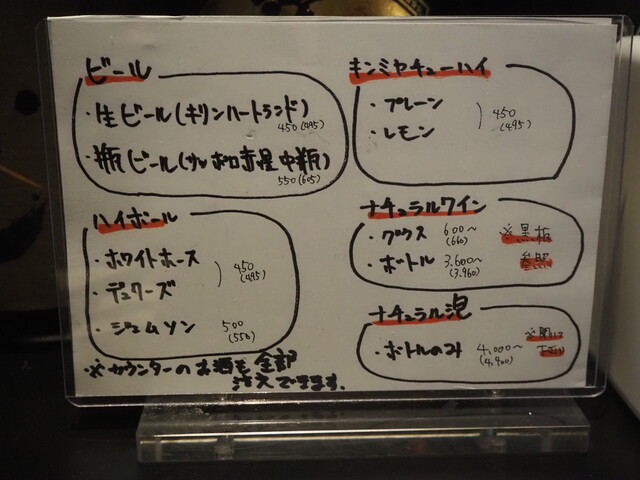 ビール
・生ビール(キリンハートランド)
450(495)
・瓶ビール(サッポロ赤星中瓶)
550(605)
ハイボール
・ホワイトホース
・デュワーズ
450
(495)
・ジェムソン 500
(550)
※カウンターのお酒も全部
注文できます.
キンミヤチューハイ
・プレーン
・レモン
450
(495)
ナチュラルワイン
・グラス 600〜 ※黒板
(660)
・ボトル 3,600〜 参照
(3,960)
ナチュラル泡
・ボトルのみ 4,000〜
(4,400)
※聞いて
下さい